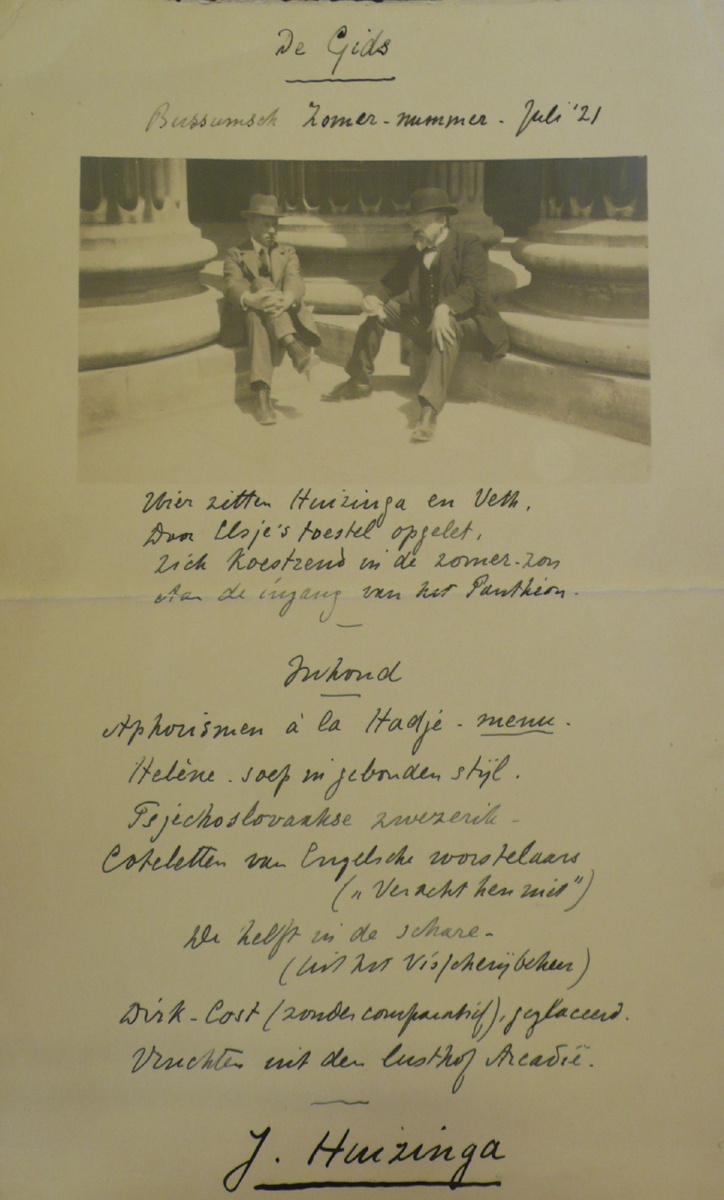 De Gids
Bussumsch Zomer-nummer - Juli '21
Hier zitten Huizinga en Veth,
Door Elsje's toestel opgelet,
Zich koestrend in de zomer-zon
Aan de ingang van het Panthéon.
Inhoud
Aphorismen à la Hadjé - menu.
Helène-soep in gebonden stijl.
Tsjechoslovaakse zwezerik -
Coteletten van Engelsche worstelaars
(„Veracht hen niet")
De helft in de schare -
(uit het Visscherijbeheer)
Dirk-Cost (zonder comparatief), geglaceerd.
Vruchten uit den lusthof Arcadië.
J. Huizinga